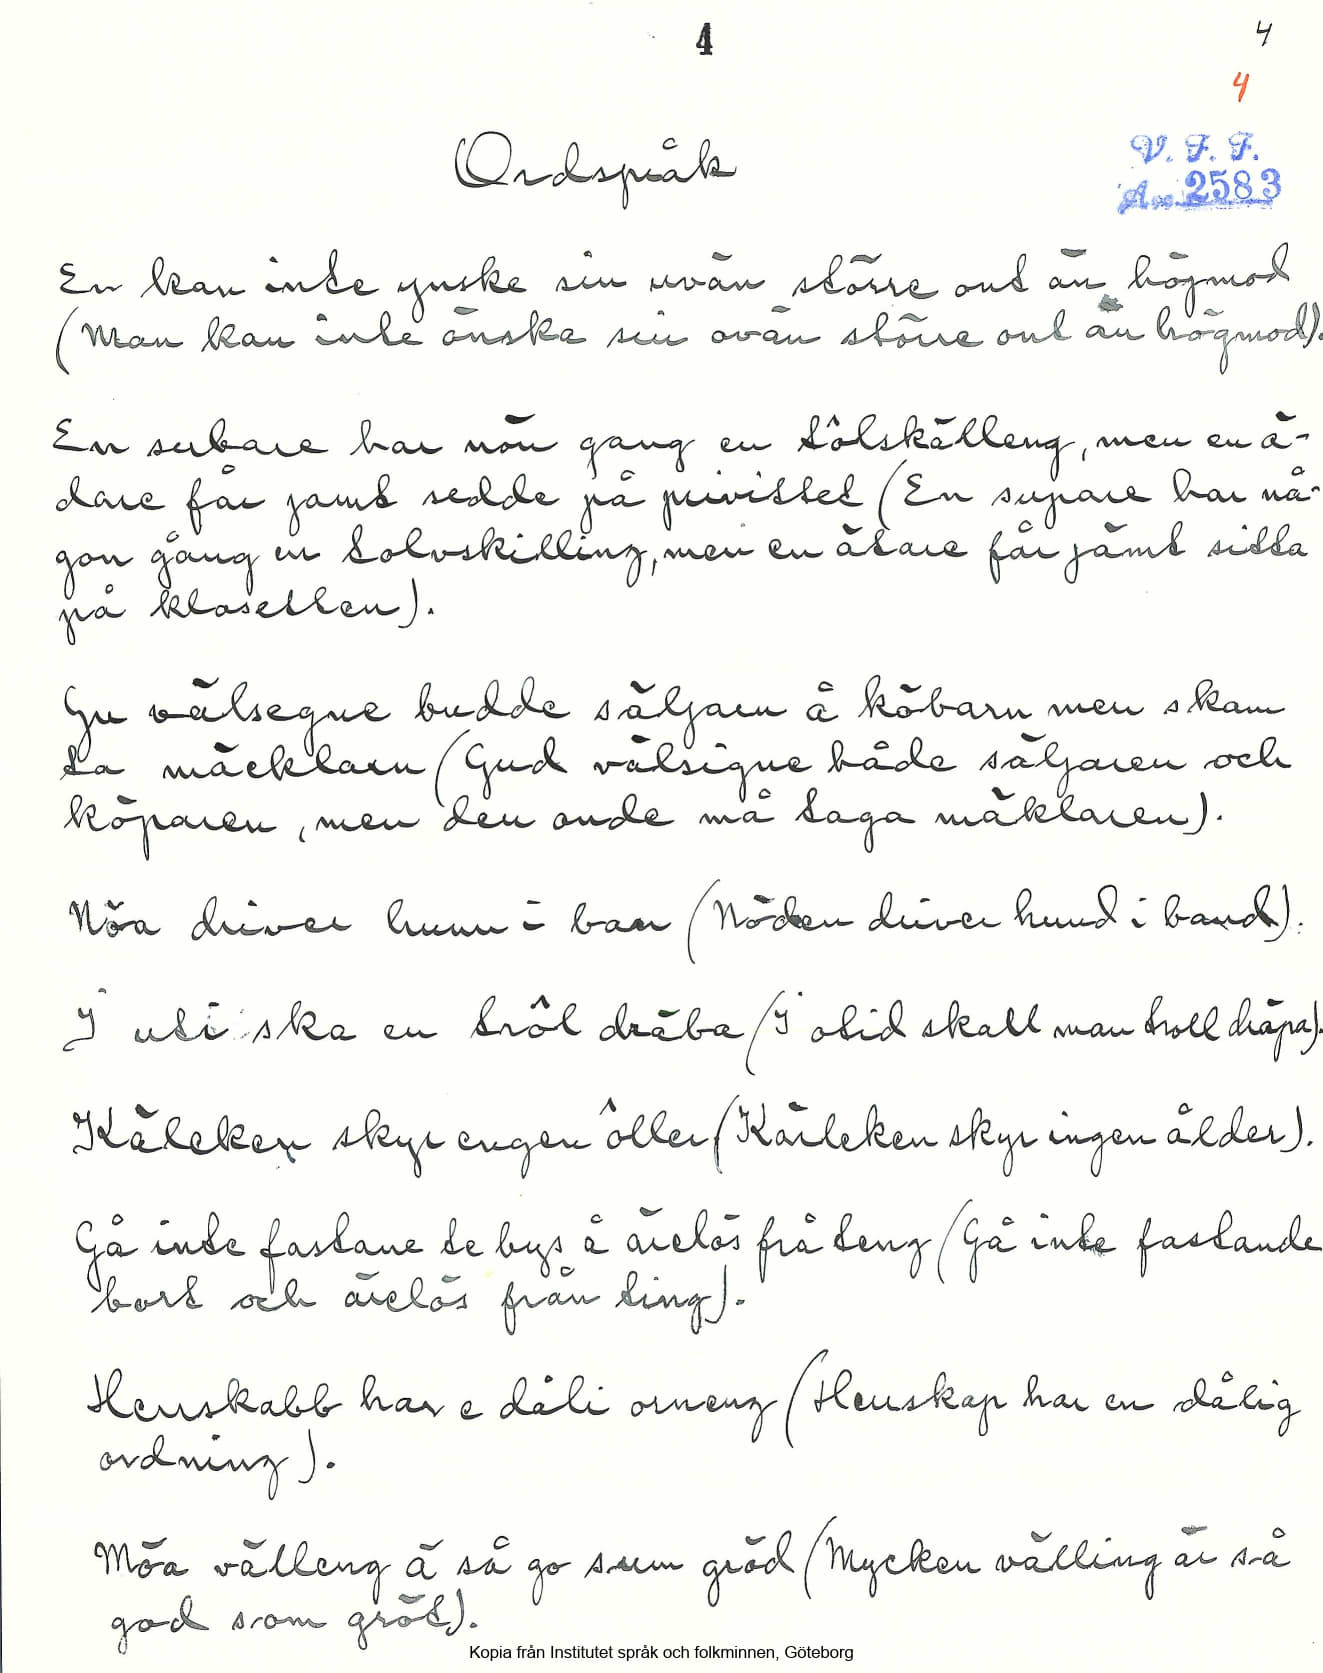 4
4
4
Ordspråk
V. F. F.
Acc. 2583
En kan inte ynske sin uvän större ont än högmod
(Man kan inte önska sin ovän större ont än högmod).
En subare har nön gang en tôlskälleng, men en ä-
dare får jamt sedde på privittet (En supare har nå-
gon gång en tolvskilling, men en ätare får jämt sitta
på klosetten).
Gu välsegne budde säljarn å köbarn men skam
ta mäcklarn (Gud välsigne både säljaren och
köparen, men den onde må taga mäklaren).
Nöa driver hunn i ban (Nöden driver hund i band).
I uti ska en trôl dräba (I otid skall man troll dräpa).
Käleken skyr engen ôller (Kärleken skyr ingen ålder).
Gå inte fastane te bys å ärelös frå teng (Gå inte fastande
bort och ärelös från ting).
Herrskabb har e dåli orneng (Herrskap har en dålig
ordning).
Möa välleng ä så go sum gröd (Mycken välling är så
god som gröt).
Kopia från Institutet språk och folkminnen, Göteborg